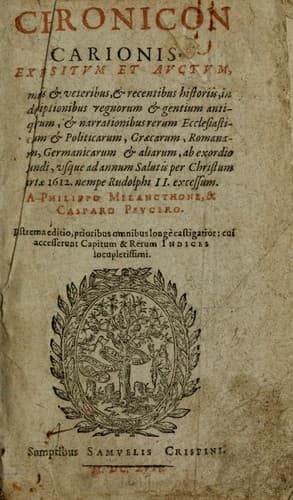 CHRONICON
CARIONIS
EXPOSITVM ET AVCTVM,
& veteribus, & recentibus historiis, in
descriptionibus regnorum & gentium anti-
& narrationibus rerum Ecclesiasti-
& Politicarum, Græcarum, Romana-
Germanicarum & aliarum, ab exordio
vsque ad annum Salutis per Christum
1612. nempe Rudolphi II. excessum.
A PHILIPPO MELANCTHONE, &
CASPARO PEVCERO.
Postrema editio, prioribus omnibus longè castigatior: cui
accesserunt Capitum & Rerum INDICES
locupletissimi.
Sumptibus SAMVELIS CRISPINI.